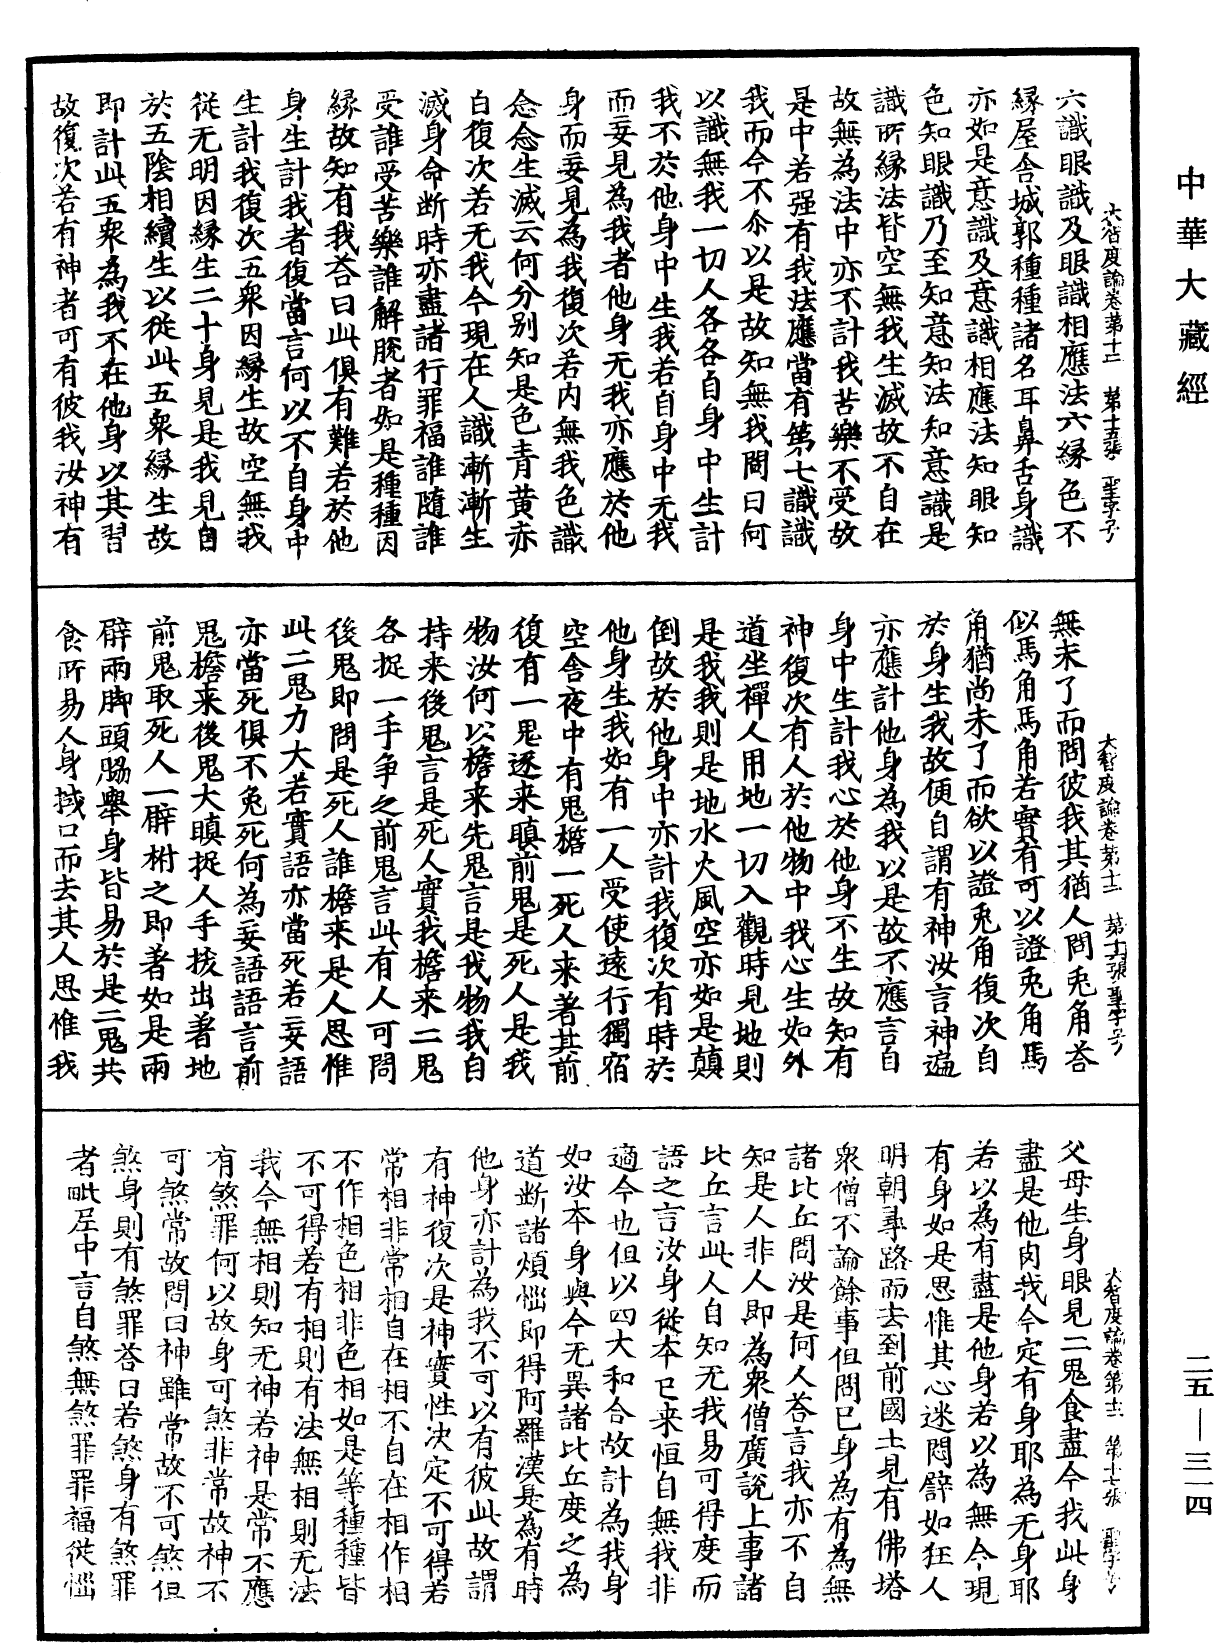 中華大藏經
大智度論卷第十二　第十五張　聖字号
六識眼識及眼識相應法六緣色不
緣屋舍城郭種種諸名耳鼻舌身識
亦如是意識及意識相應法知眼知
色知眼識乃至知意知法知意識是
識所緣法皆空無我生滅故不自在
故無為法中亦不計我苦樂不受故
是中若强有我法應當有第七識識
我而今不尒以是故知無我問曰何
以識無我一切人各各自身中生計
我不於他身中生我若自身中无我
而妄見為我者他身无我亦應於他
身而妄見為我復次若内無我色識
念念生滅云何分别知是色青黄赤
白復次若无我今現在人識漸漸生
滅身命断時亦盡諸行罪福誰隨誰
受誰受苦樂誰解脫者如是種種因
緣故知有我荅曰此俱有難若於他
身生計我者復當言何以不自身中
生計我復次五衆因緣生故空無我
從无明因緣生二十身見是我見自
於五陰相續生以從此五衆緣生故
即計此五衆為我不在他身以其習
故復次若有神者可有彼我汝神有
大智度論卷第十二　第十六張　聖字号
無未了而問彼我其猶人問兎角荅
似馬角馬角若實有可以證兎角馬
角猶尚未了而欲以證兎角復次自
於身生我故便自謂有神汝言神遍
亦應計他身為我以是故不應言自
身中生計我心於他身不生故知有
神復次有人於他物中我心生如外
道坐禪人用地一切入觀時見地則
是我我則是地水火風空亦如是顛
倒故於他身中亦計我復次有時於
他身生我如有一人受使遠行獨宿
空舍夜中有鬼檐一死人来著其前
復有一鬼逐来瞋前鬼是死人是我
物汝何以檐来先鬼言是我物我自
持来後鬼言是死人實我檐来二鬼
各捉一手争之前鬼言此有人可問
後鬼即問是死人誰檐来是人思惟
此二鬼力大若實語亦當死若妄語
亦當死俱不免死何為妄語語言前
鬼檐来後鬼大瞋捉人手拔出著地
前鬼取死人一臂拊之即著如是兩
臂兩脚頭脇舉身皆易於是二鬼共
食所易人身拭口而去其人思惟我
大智度論卷第十二　第十七張　聖字号
父母生身眼見二鬼食盡今我此身
盡是他肉我今定有身耶為无身耶
若以為有盡是他身若以為無今現
有身如是思惟其心迷悶譬如狂人
明朝尋路而去到前國土見有佛塔
衆僧不論餘事但問已身為有為無
諸比丘問汝是何人荅言我亦不自
知是人非人即為衆僧廣說上事諸
比丘言此人自知无我易可得度而
語之言汝身從本已来恒自無我非
適今也但以四大和合故計為我身
如汝本身與今无異諸比丘度之為
道断諸煩惱即得阿羅漢是為有時
他身亦計為我不可以有彼此故謂
有神復次是神實性决定不可得若
常相非常相自在相不自在相作相
不作相色相非色相如是等種種皆
不可得若有相則有法無相則无法
我今無相則知无神若神是常不應
有煞罪何以故身可煞非常故神不
可煞常故問曰神雖常故不可煞但
煞身則有煞罪荅曰若煞身有煞罪
者毗尼中言自煞無煞罪罪福從惱
二五—三一四